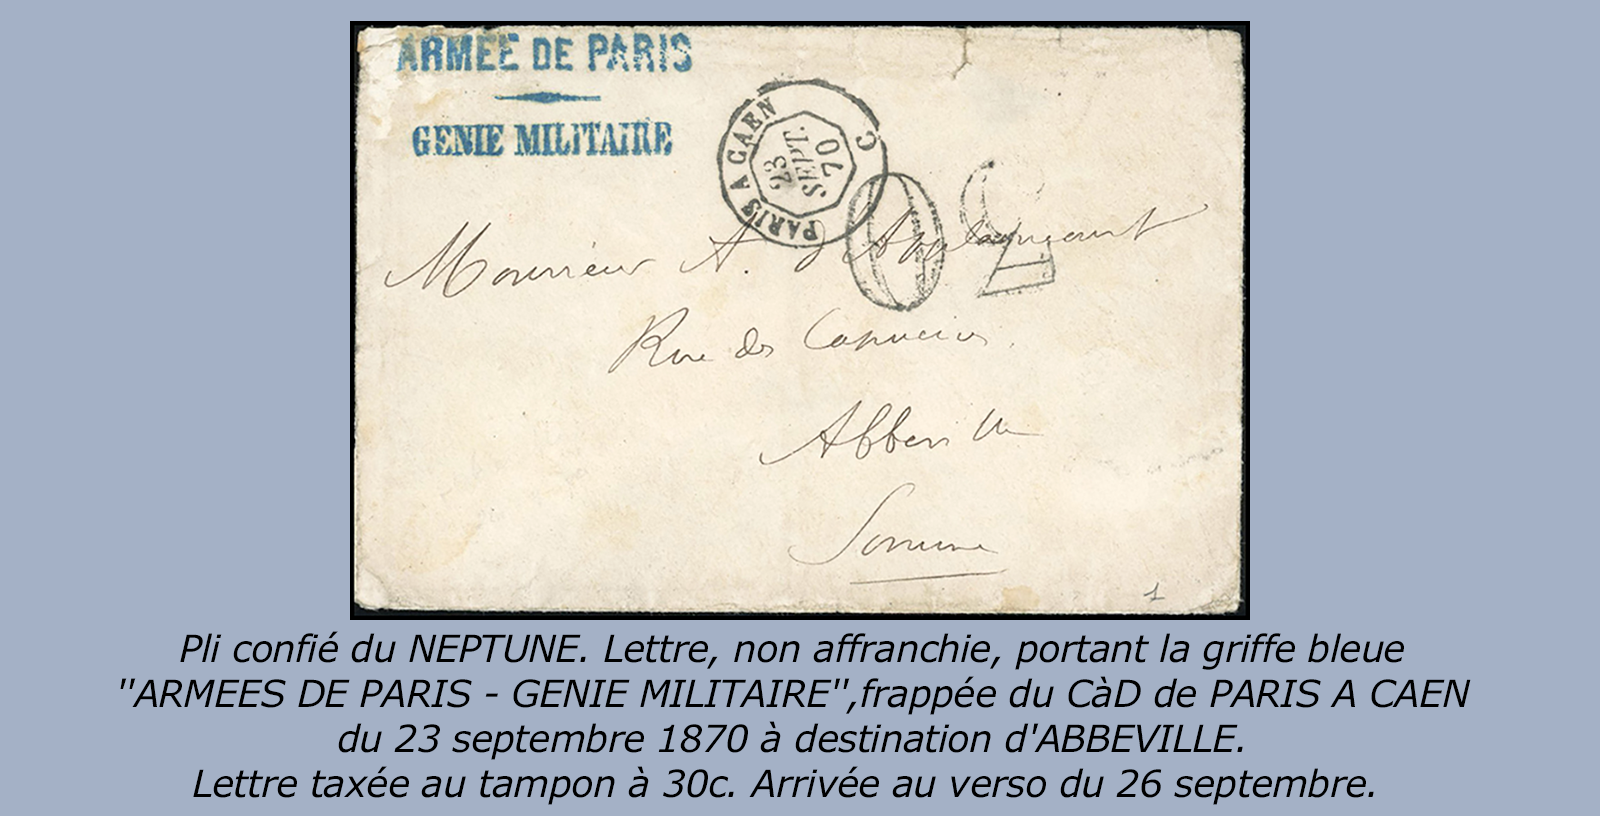 ARMÉE DE PARIS
GENIE MILITAIRE
PARIS A CAEN
C
23
SEPT.
70
30
Monsieur A. d'
Rue des Capucins.
Abbeville
Somme
1
Pli confié du NEPTUNE. Lettre, non affranchie, portant la griffe bleue
"ARMEES DE PARIS - GENIE MILITAIRE",frappée du CàD de PARIS A CAEN
du 23 septembre 1870 à destination d'ABBEVILLE.
Lettre taxée au tampon à 30c. Arrivée au verso du 26 septembre.